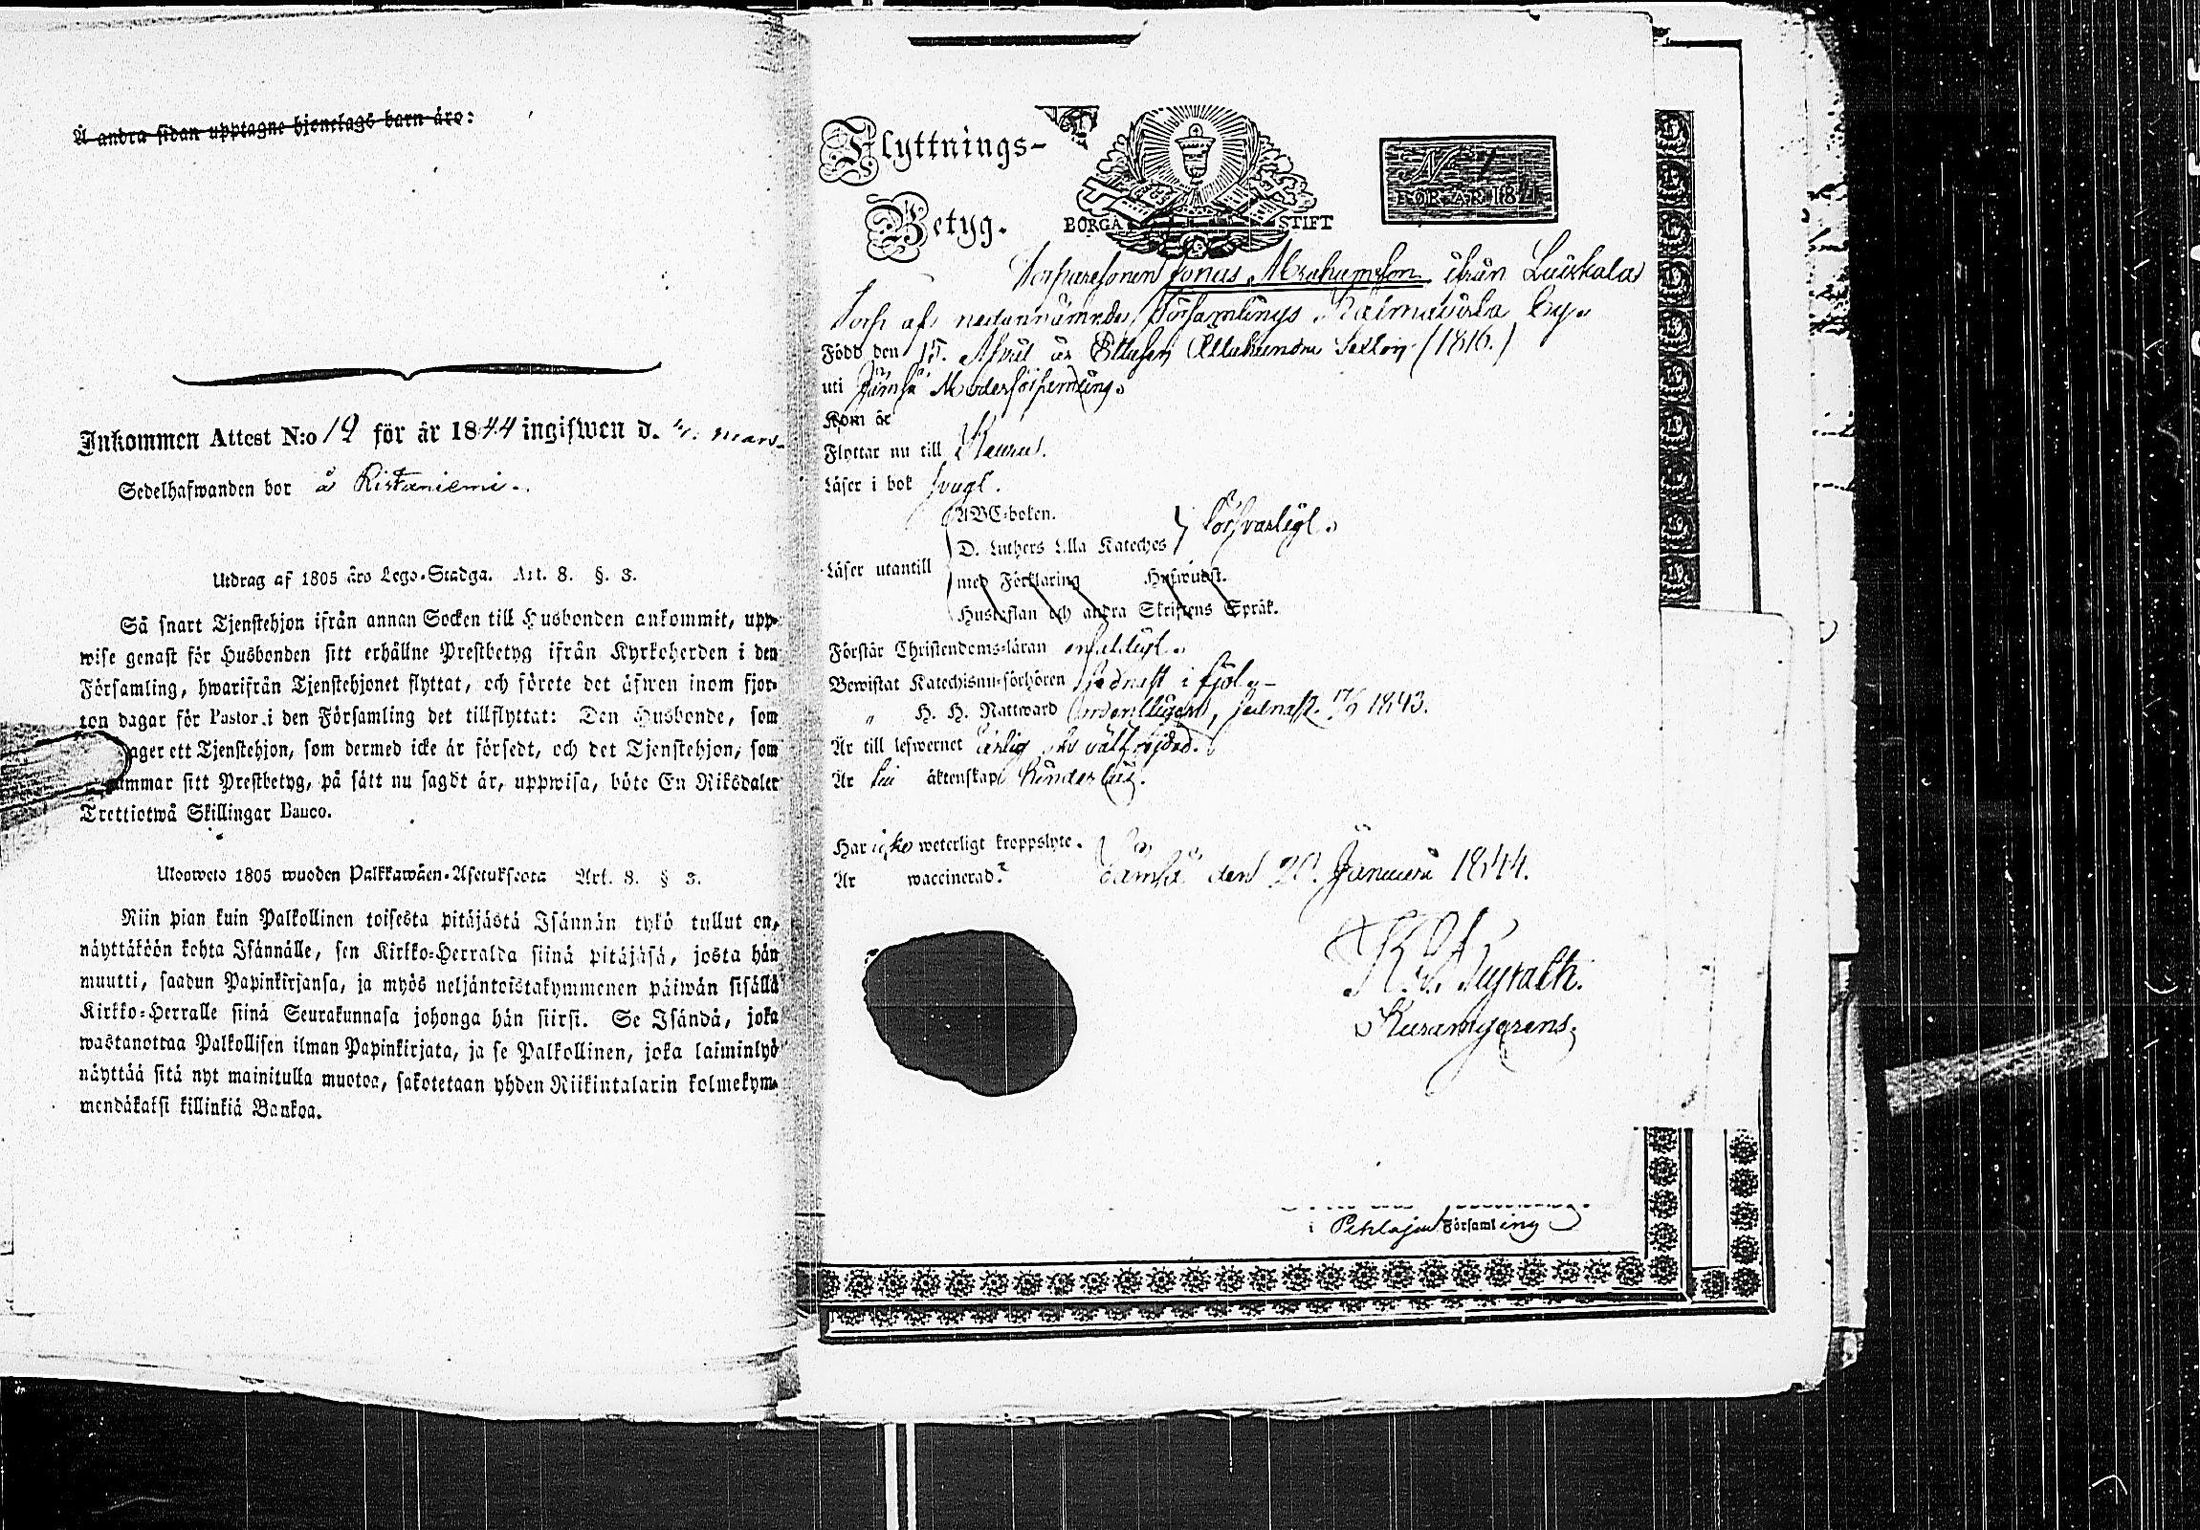 Å andra sidan upptagne hjonelags barn äro:
Inkommen Attest N:o 19 för år 1844 ingifwen d. mars
Sedelhafwanden bor å Ristaniemi.
Utdrag af 1805 års Lego-Stadga. Art. 8. §. 3.
Så snart Tjenstehjon ifrån annan Socken till Husbonden ankommit, upp-
wise genast för Husbonden sitt erhållne Prestbetyg ifrån Kyrkoherden i den
Församling, hwarifrån Tjenstehjonet flyttat, och förete det äfwen inom fjor-
ton dagar för Pastor i den Församling det tillflyttat: Den Husbonde, som
ager ett Tjenstehjon, som dermed icke är försedt, och det Tjenstehjon, som
ummar sitt Prestbetyg, på sätt nu sagdt är, uppwisa, böte En Riksdaler
Trettiotwå Skillingar Banco.
Uloosweto 1805 wuoden Palkkawäen-Asetuksesta Art. 8. § 3.
Niin pian kuin Palkollinen toisesta pitäjästä Isännän tykö tullut on,
näyttäköön kohta Isännälle, sen Kirkko-Herralda siinä pitäjäsä, josta hän
muutti, saadun Papinkirjansa, ja myös neljäntoistakymmenen päiwän sisällä
Kirkko-Herralle siinä Seurakunnasa johonga hän siirsi. Se Isändä, joka
wastanottaa Palkollisen ilman Papinkirjata, ja se Palkollinen, joka laiminlyö
näyttää sitä nyt mainitulla muotoa, sakotetaan yhden Riikintalarin kolmekym-
mendäkaksi killinkiä Bankoa.
Flyttnings-
Betyg.
BORGÅ STIFT
N 1
FÖR ÅR 184
Torparesonen Jonas Abrahamsson ifrån Luiskala
Torp af nedannämnde Församlings by.
Född den 15. April år Ettusen Ottahundra Sexton (1816.)
uti Jämsä Moderförsamling.
Kom år
Flyttar nu till Keuru.
Läser i bok svagl.
ABC-boken.
D. Luthers Lilla Kateches
försvarligt.
Läser utantill
med Förklaring Hufwudst.
Hustaflan och andra Skriftens Språk.
Förstår Christendoms-läran enfaldigt.
Bewistat Katechismi-förhören sednast i fjol.
" H. H. Nattward ordentligen, sednast 17/9 1843.
Är till lefwernet ärlig och välfrejdad.
Är till äktenskap hinderlös.
Har icke weterligt kroppslyte.
Är waccinerad.
Jämsä den 20. Januarii 1844.
K. A.
i Petäjäwesi Församling